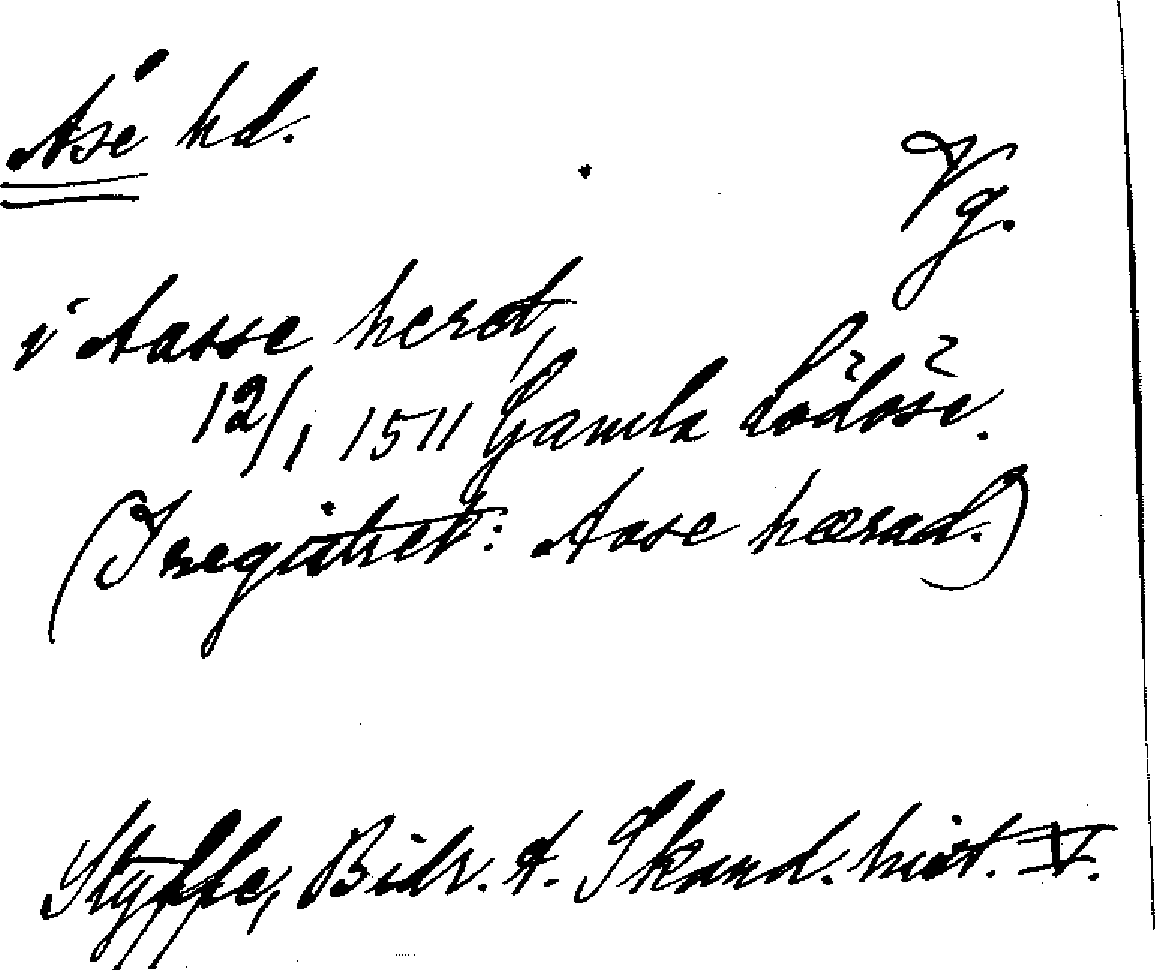 Åse hd.
Vg.
i Aasse heret,
12/1 1511 Gamla Lödöse.
(I registret: Aase hærad.)
Styffe, Bidr. t. Skand. hist. V.